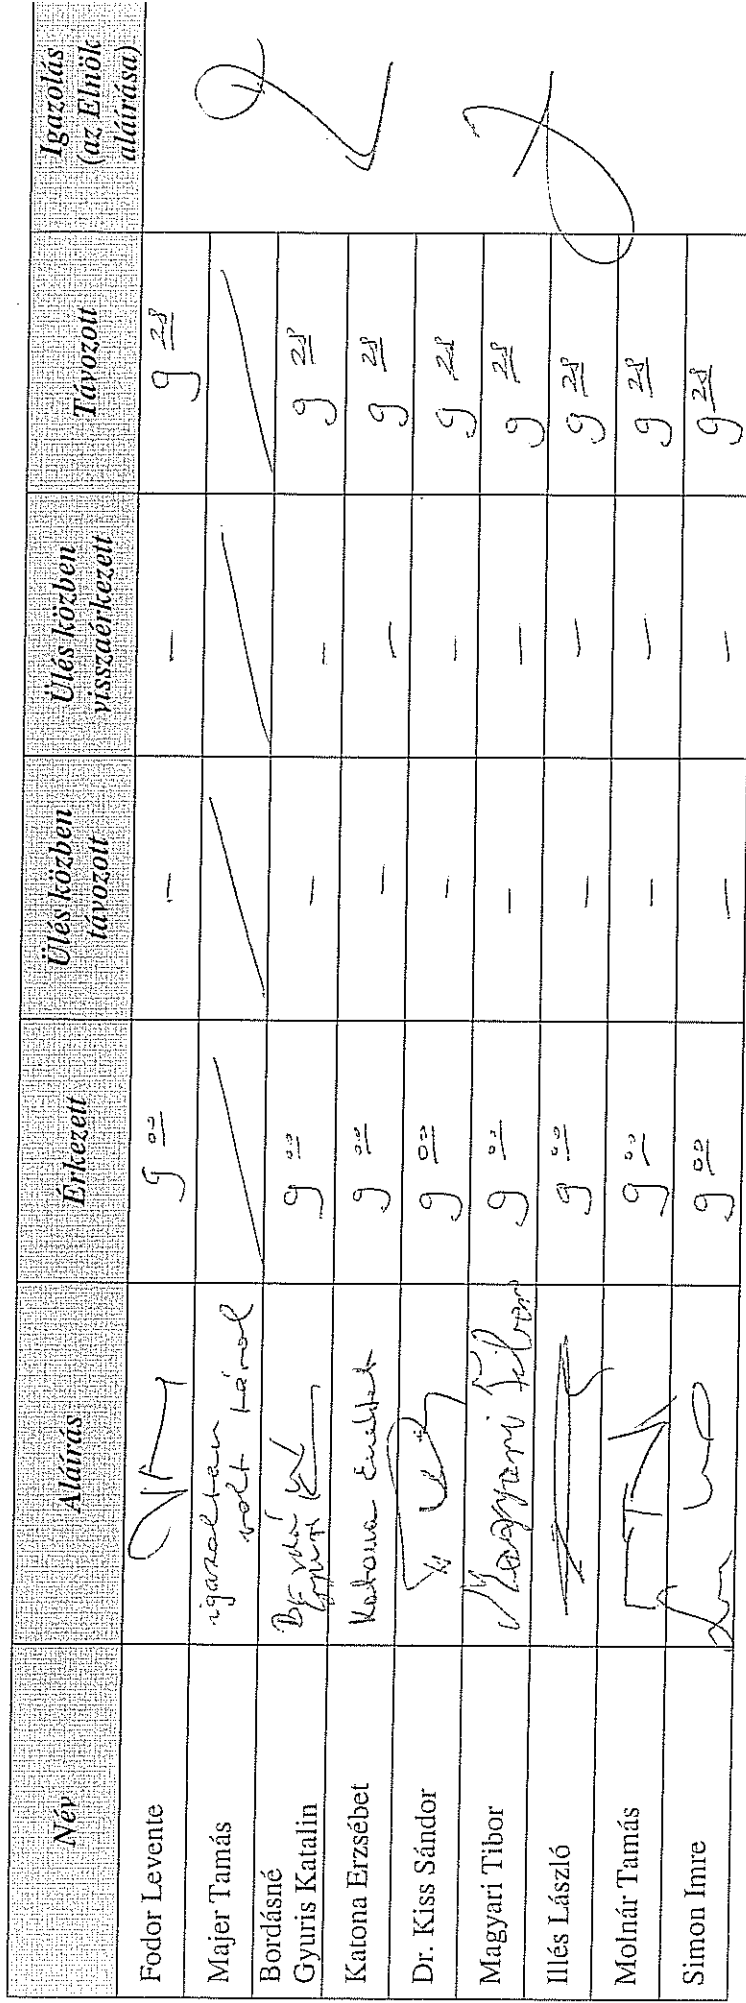 Név Aláírás Érkezett Ülés közben távozott Ülés közben visszaérkezett Távozott Igazolás (az Elnök aláírása)
Fodor Levente 9 00 – – 9 28
Majer Tamás igazoltan volt távol
Bordásné Gyuris Katalin 9 00 – – 9 28
Katona Erzsébet Katona Erzsébet 9 00 – – 9 28
Dr. Kiss Sándor 9 00 – – 9 28
Magyari Tibor Magyari Tibor 9 00 – – 9 28
Illés László 9 00 – – 9 28
Molnár Tamás 9 00 – – 9 28
Simon Imre 9 00 – – 9 28